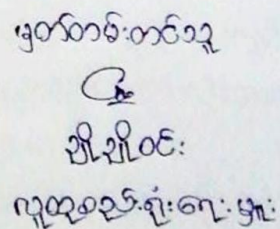 မှတ်တမ်းတင်သူ
ညိုညိုဝင်း
လူထုစည်းရုံးရေးမှူး